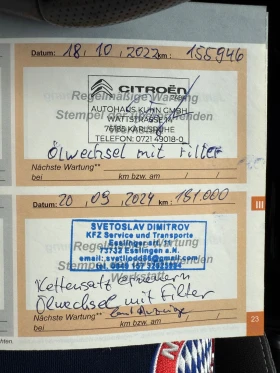 Datum: 18. 10. 2022 km: 155946
Regelmäßige Wartung
CITROËN
AUTOHAUS KUHN GMBH
WATTSTRASSE 14
76185 KARLSRUHE
TELEFON: 0721 49018-0
Stempel
Ölwechsel mit Filter
Nächste Wartung*
bei km bzw. am /
Datum: 20. 09. 2024 km: 181.000
SVETOSLAV DIMITROV
KFZ Service und Transporte
Esslinger str.
73732 Esslingen a.N.
Kettensatz erneuern
Ölwechsel mit Filter
Nächste Wartung*
bei km bzw. am /
III
23